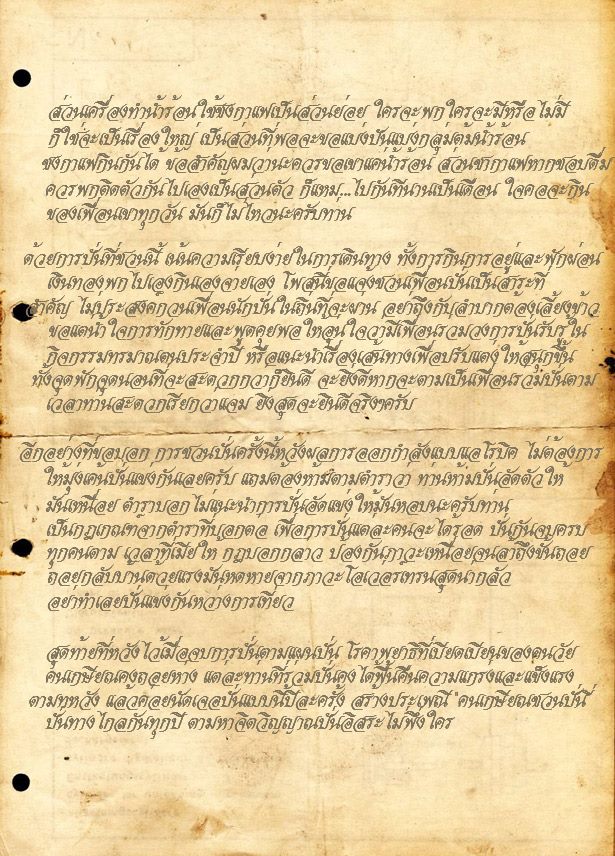 ส่วนเครื่องทำน้ำร้อนใช้ชงกาแฟเป็นส่วนย่อย ใครจะพกใครจะมีหรือไม่มี
ก็ใช้จะเป็นเรื่องใหญ่ เป็นส่วนที่พอจะขอแบ่งปันแบ่งกลุ่มต้มน้ำร้อน
ชงกาแฟกินกันได้ ข้อสำคัญผมว่านะควรขอเขาแค่น้ำร้อน ส่วนชากาแฟหากชอบดื่ม
ควรพกติดตัวกันไปเองเป็นส่วนตัว ก็แหม...ไปกันทีนานเป็นเดือน ใจคอจะกิน
ของเพื่อนเขาทุกวัน มันก็ไม่ไหวนะครับท่าน
ด้วยการปั่นที่ชวนนี้ เน้นความเรียบง่ายในการเดินทาง ทั้งการกินการอยู่และพักผ่อน
เงินทองพกไปเองกินเองจ่ายเอง โพสนี้ขอแจ้งชวนเพื่อนปั่นเป็นสาระที่
สำคัญ ไม่ประสงค์กวนเพื่อนนักปั่นในถิ่นที่จะผ่าน อย่าถึงกับลำบากต้องเลี้ยงข้าว
ขอแค่น้ำใจการทักทายและพูดคุยพอให้อุ่นใจว่ามีเพื่อนร่วมวงการปั่นรับรู้ใน
กิจกรรมทรมาณคนประจำปี หรือแนะนำเรื่องเส้นทางเพื่อปรับแต่งให้สนุกขึ้น
ทั้งจุดพักจุดนอนที่จะสะดวกกว่าก็ยินดี จะยิ่งดีหากจะตามเป็นเพื่อนร่วมปั่นตาม
เวลาท่านสะดวกเรียกว่าแจม ยิ่งสุดจะยินดีจริงๆครับ
อีกอย่างที่ขอบอก การชวนปั่นครั้งนี้หวังผลการออกกำลังแบบแอโรบิค ไม่ต้องการ
ให้มุ่งเค้นปั่นแข่งกันเลยครับ แถมต้องห้ามตามตำราว่า ท่านห้ามปั่นอัดตัวให้
มันเหนื่อย ตำราบอกไม่แนะนำการปั่นอัดแข่งให้มันหอบนะครับท่าน
เป็นกฎเกณฑ์จากตำราที่บอกต่อ เพื่อการปั่นแต่ละคนจะได้รอด ปั่นกันจบครบ
ทุกคนตาม เวลาที่เมียให้ กฎบอกกล่าว ป้องกันภาวะเหนื่อยจนล้าถึงขั้นถอย
ถอยกลับบ้านด้วยแรงมันหดหายจากภาวะโอเวอร์เทรนสุดน่ากลัว
อย่าทำเลยปั่นแข่งกันหว่างการเที่ยว
สุดท้ายที่หวังไว้เมื่อจบการปั่นตามแผนปั่น โรคาพยาธิที่เบียดเบียนของคนวัย
คนเกษียณคงถอยห่าง แต่ละท่านที่ร่วมปั่นคงได้ฟื้นคืนความแกร่งและแข็งแรง
ตามที่หวัง แล้วค่อยนัดเจอปั่นแบบนี้ปีละครั้ง สร้างประเพณี "คนเกษียณชวนปั่น"
ปั่นทางไกลกันทุกปี ตามหาจิตวิญญาณปั่นอิสระไม่พึ่งใคร